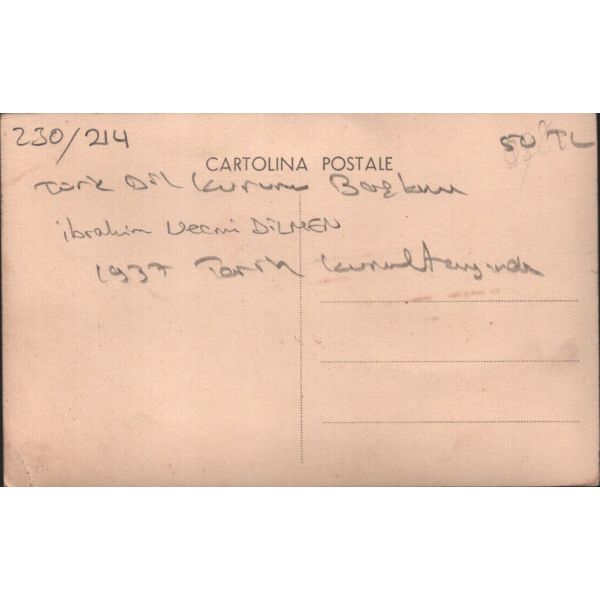 230/214
50 TL
CARTOLINA POSTALE
Türk Dil Kurumu Başkanı
ibrahim Necmi DİLMEN
1937 Tarih Kurultayında